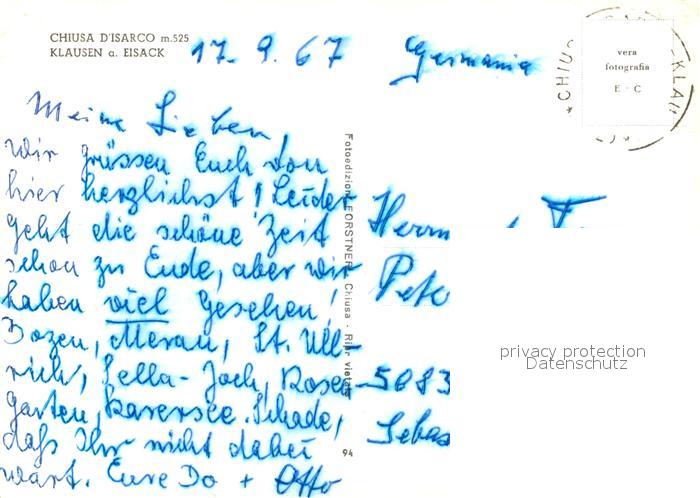 CHIUSA D'ISARCO m.525
KLAUSEN a. EISACK
17. 9. 67
Germania
vera
fotografia
E · C
* CHIUS
KLAU
Meine Lieben,
wir grüssen Euch von
hier herzlichst! Leider
geht die schöne Zeit
schon zu Ende, aber wir
haben viel gesehen!
Bozen, Meran, St. Ull-
rich, Sella-Joch, Rosen-
garten, Karersee. Schade,
daß Ihr nicht dabei
wart. Eure Do + Otto
Fotoedizioni FORSTNER, Chiusa - Ripr. vietata
94
Herrn
Pete
5083
Sebas
privacy protection
Datenschutz